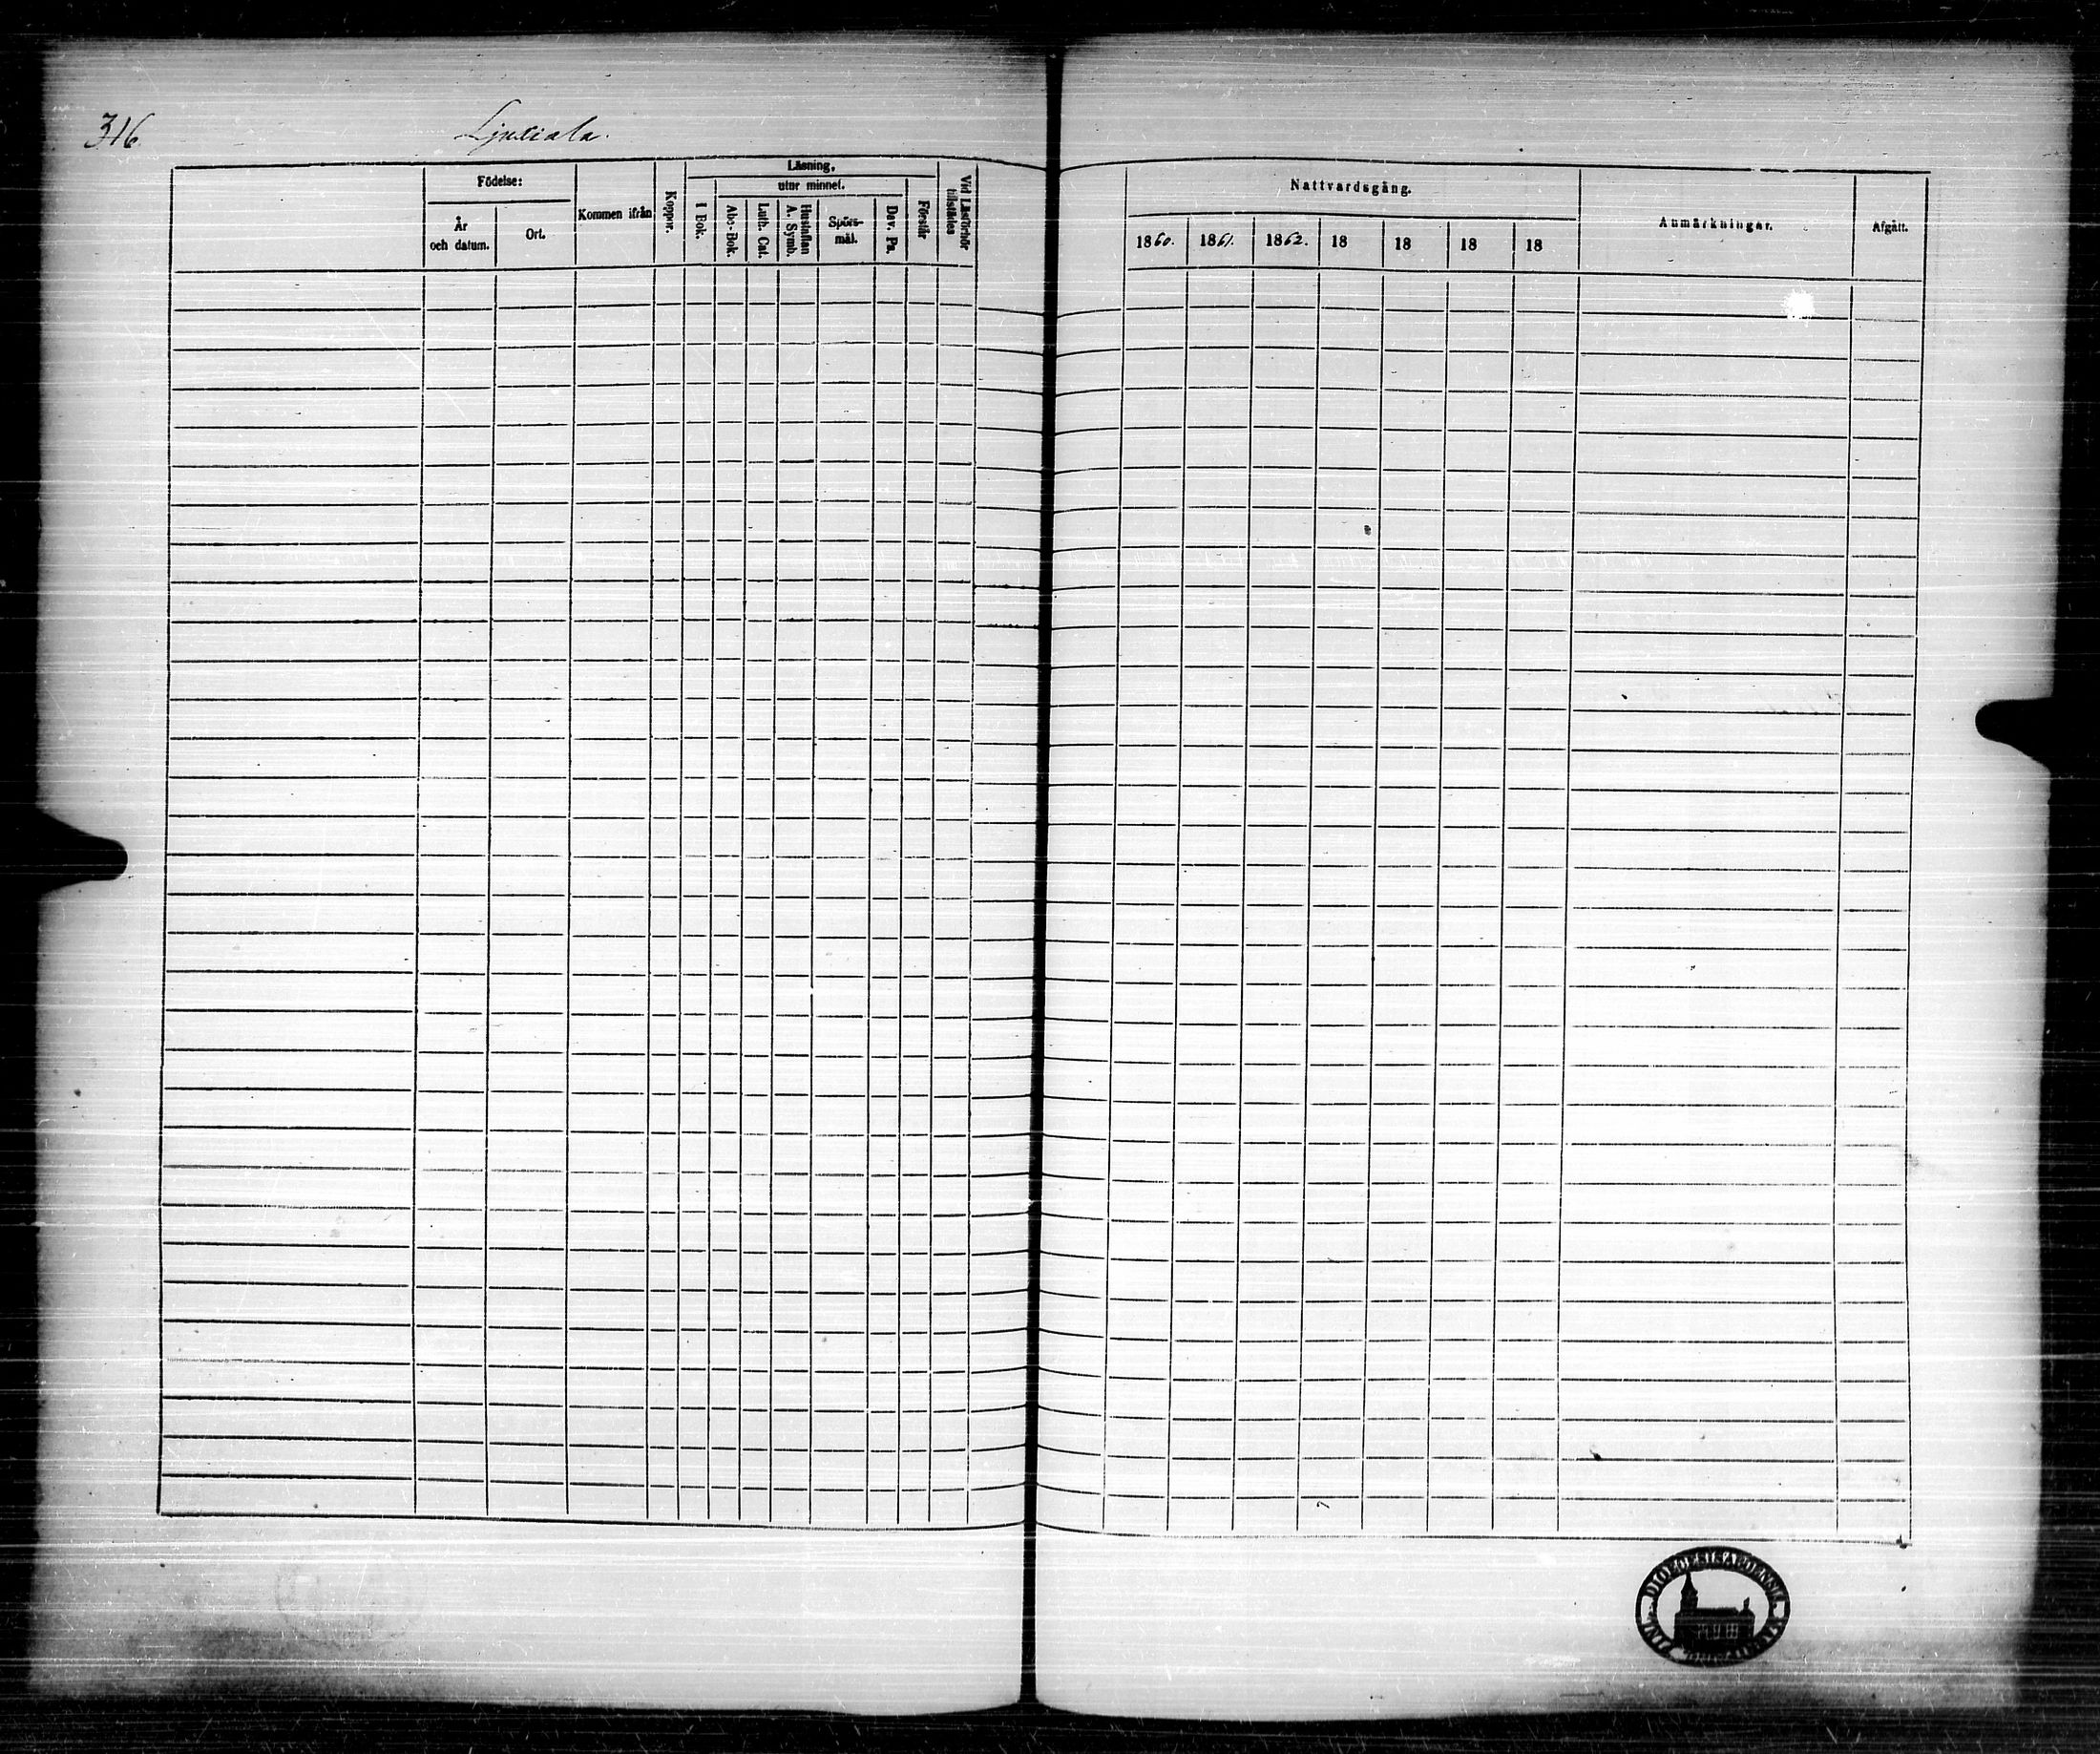 316.
Födelse:
År
och datum.
Ort.
Kommen ifrån
Koppor.
Läsning,
utur minnet.
I Bok.
Abc-Bok.
Luth. Cat.
Hustaflan
A. Symb.
Spörs-
mål.
Dav. Ps.
Förstår
Vid Läsförhör
tillstädes
Nattvardsgång.
1860. 1861. 1862. 18 18 18 18
Anmärkningar.
Afgått.